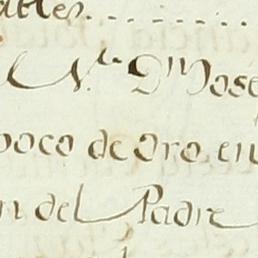 ables..........
N.r D.n Jose
poco de oro en
n del Padre